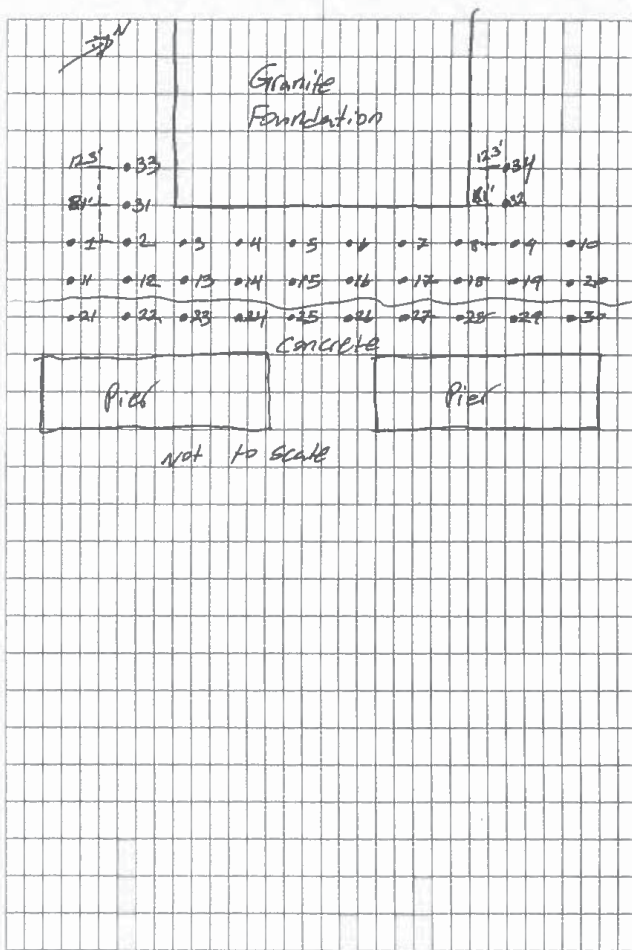 N
Granite
Foundation
12.3' 33 12.3' 34
8.1' 31 8.1' 32
1 2 3 4 5 6 7 8 9 10
11 12 13 14 15 16 17 18 19 20
21 22 23 24 25 26 27 28 29 30
Concrete
Pier Pier
Not to scale